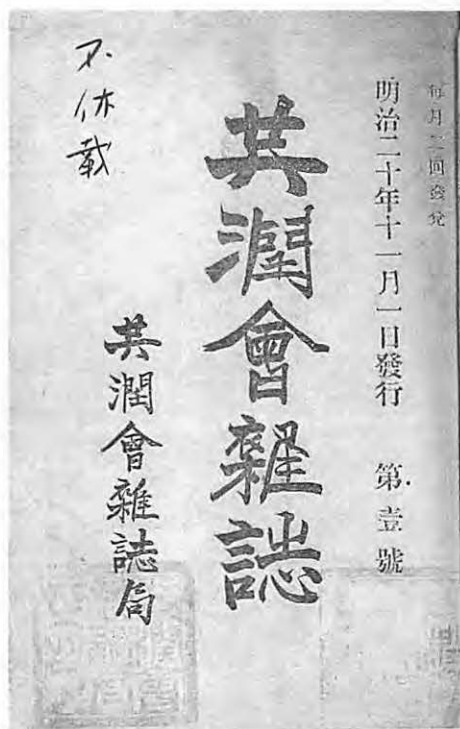 每月二回發兌
明治二十年十一月一日發行 第壹號
共潤會雜誌
共潤會雜誌局
不休載